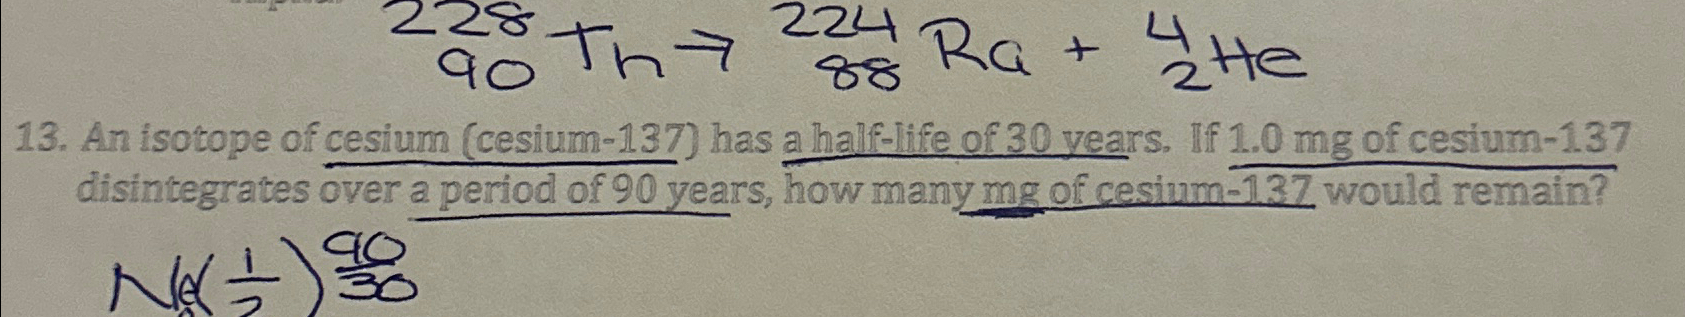 ²²⁸₉₀Th → ²²⁴₈₈Ra + ⁴₂He
13. An isotope of cesium (cesium-137) has a half-life of 30 years. If 1.0 mg of cesium-137
disintegrates over a period of 90 years, how many mg of cesium-137 would remain?
N(1/2)^90/30